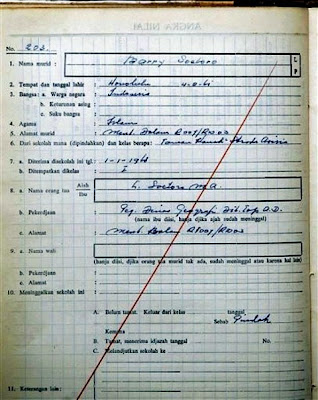 ANGKA NILAI
No. 203.
1. Nama murid : Barry Soetoro L P
2. Tempat dan tanggal lahir : Honolulu 4-8-61
3. Bangsa : a. Warga negara : Indonesia
b. Keturunan asing :
c. Suku bangsa :
4. Agama : Islam
5. Alamat murid : Ment. Dalam R007/R003
6. Dari sekolah mana (dipindahkan) dan kelas berapa : Taman Kanak²
7. a. Diterima disekolah ini tgl. : 1-1-1968
b. Ditempatkan dikelas : I
8. a. Nama orang tua Ajah Ibu : L. Soetoro M.A.
b. Pekerdjaan : Peg. Dinas Geografi Dit. Top. A.D.
(nama ibu diisi, hanja djika ajah sudah meninggal)
c. Alamat : Ment. Dalam R007/R003
9. a. Nama wali :
(hanja diisi, djika orang tua murid tak ada, sudah meninggal atau karena hal lain
b. Pekerdjaan :
c. Alamat :
10. Meninggalkan sekolah ini :
A. Belum tamat. Keluar dari kelas tanggal
Sebab Pindah
Kemana
B. Tamat, menerima idjazah tanggal No.
C. Melandjutkan sekolah ke
11. Keterangan lain :